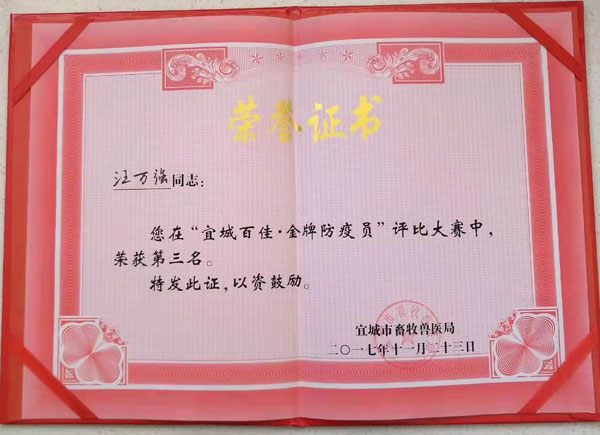 荣誉证书
汪万强同志：
您在“宜城百佳·金牌防疫员”评比大赛中，
荣获第三名。
特发此证，以资鼓励。
宜城市畜牧兽医局
二〇一七年十一月二十三日